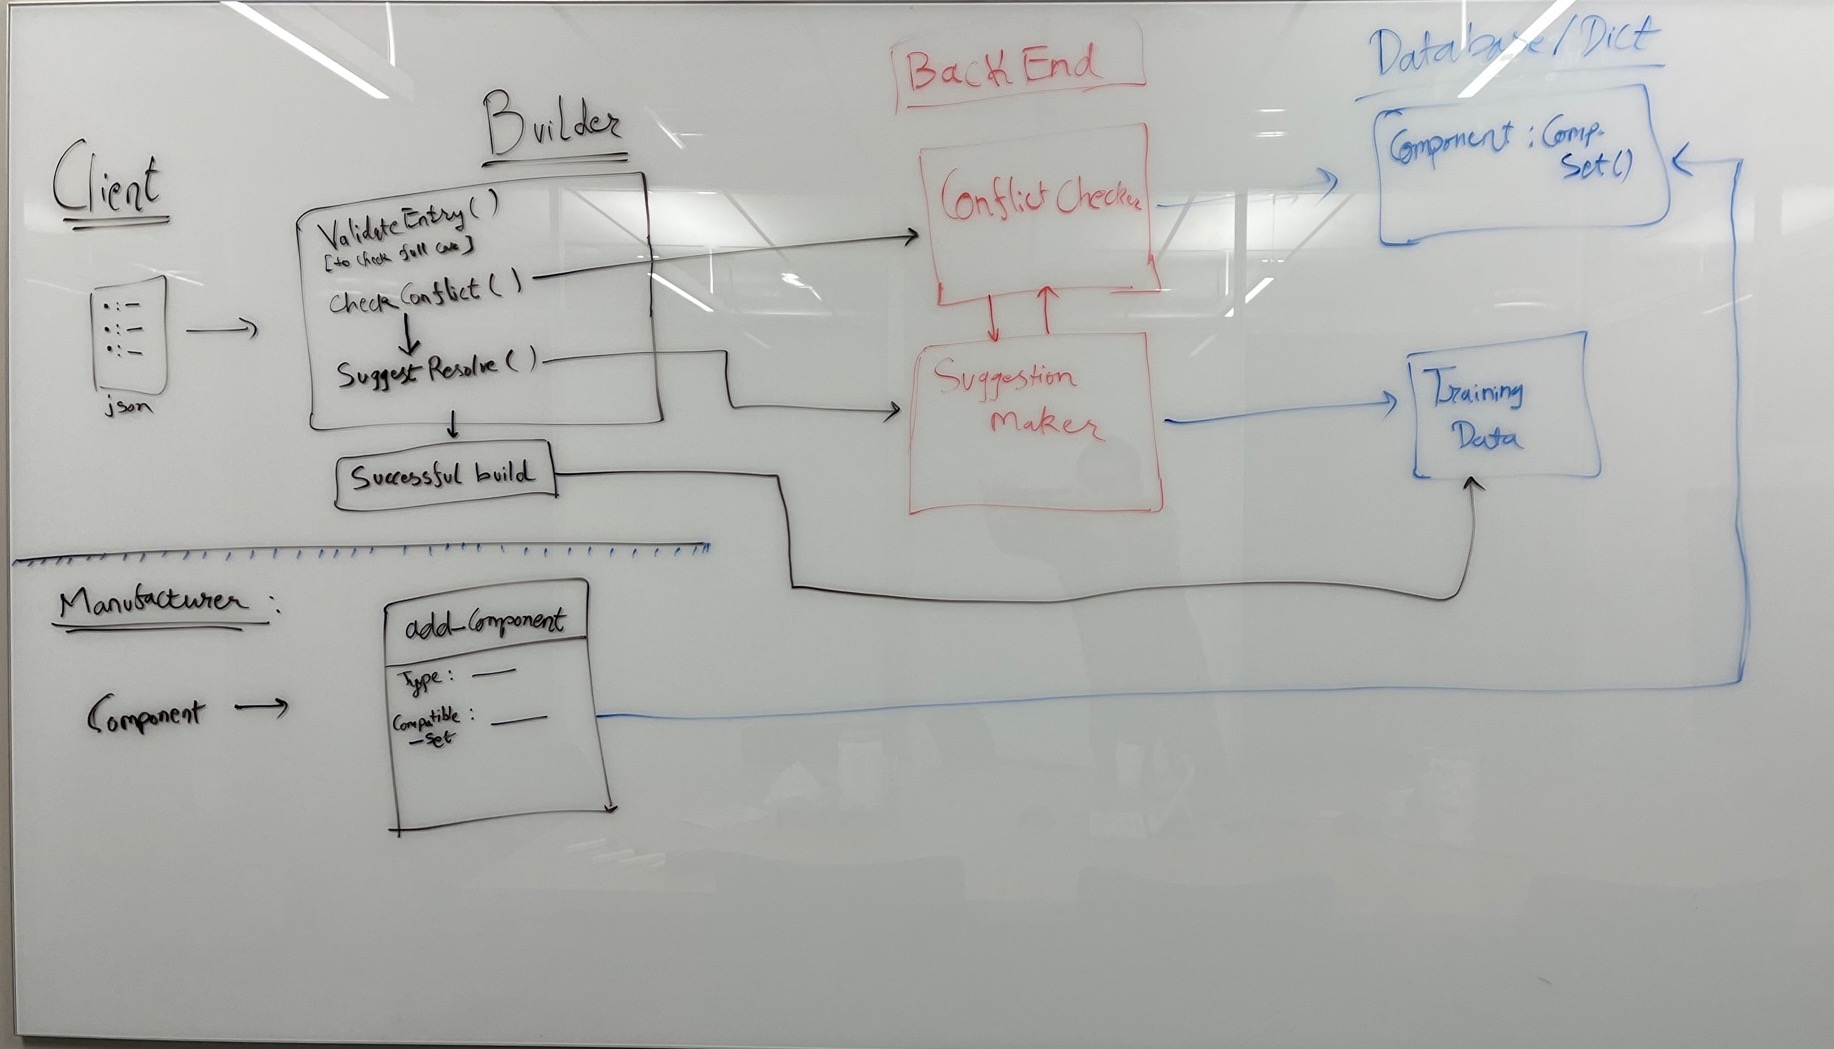 Client
json
Builder
ValidateEntry()
[to check full case]
CheckConflict()
SuggestResolve()
Successful build
Back End
Conflict Checker
Suggestion
Maker
Database/Dict
Component : Comp.
Set()
Training
Data
Manufacturer :
Component
add_Component
Type :
Compatible :
_Set